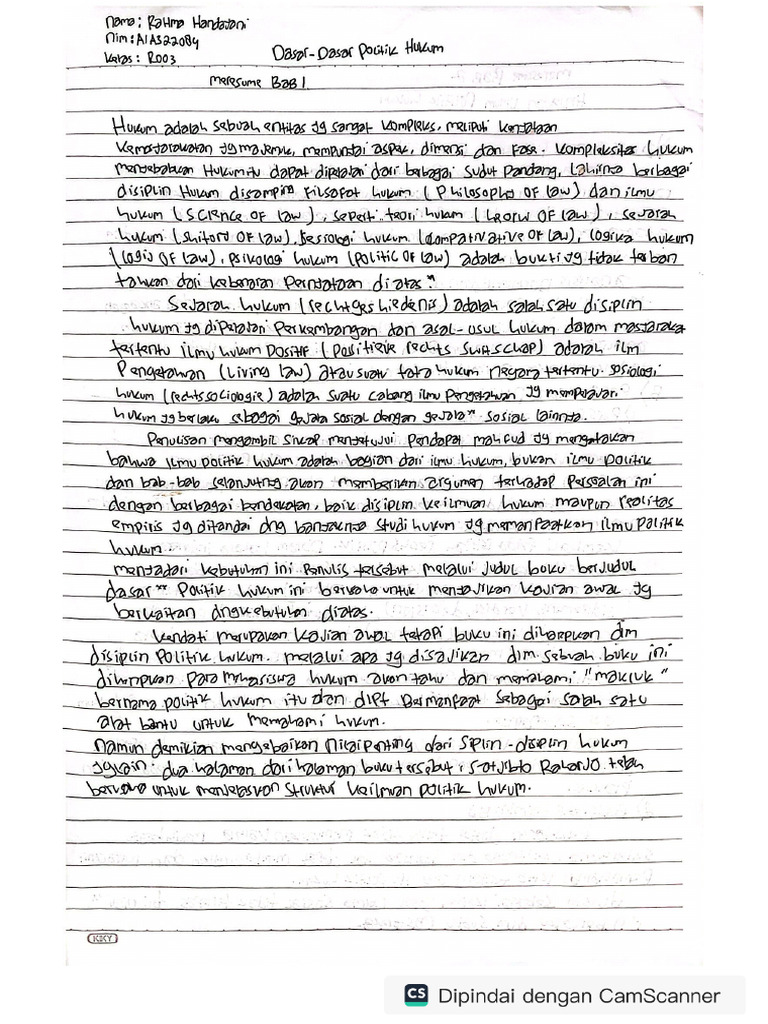 Nama : Rahma Handayani
Nim : A1A322084
Kelas : R003
Dasar-Dasar Politik Hukum
Meresume Bab 1
Hukum adalah sebuah entitas yg sangat kompleks, meliputi kenyataan
kemasyarakatan yg majemuk, mempunyai aspek, dimensi dan fase. kompleksitas hukum
menyebabkan Hukum itu dapat dipelajari dari berbagai sudut pandang, lahirnya berbagai
disiplin Hukum disamping filsafat hukum (Philosophy OF law) dan ilmu
hukum (Science OF law), seperti teori hukum (teori OF law), sejarah
hukum (OF law), sosiologi hukum (OF law), logika hukum
(logis OF law), psikologi hukum (Politic OF law) adalah bukti yg tidak terban
tahkan dari kebenaran Pernyataan diatas"
Sejarah hukum (rechtgeshiedenis) adalah salah satu disiplin
hukum yg dipelajari Perkembangan dan asal-usul hukum dalam masyaraka
tertentu ilmu hukum Positif (Positieve rechts) adalah ilm
Pengetahuan (Living law) atau suatu tata hukum negara tertentu. sosiologi
hukum (rechtssociologie) adalah suatu cabang ilmu Pengetahuan yg mempelajari
hukum yg berlaku sebagai gejala sosial dengan gejala" sosial lainnya.
Penulisan mengambil sikap menyetujui Pendapat mahfud yg mengatakan
bahwa ilmu politik hukum adalah bagian dari ilmu hukum, bukan ilmu politik
dan bab-bab selanjutnya akan memberikan argumen terhadap Persoalan ini
dengan berbagai pendekatan, baik disiplin keilmuan hukum maupun realitas
empiris yg ditandai dng banyaknya studi hukum yg memanfaatkan ilmu Politik
hukum
menyadari kebutuhan ini Penulis tersebut melalui judul buku berjudul
dasar" Politik hukum ini berusaha untuk menyajikan kajian awal yg
berkaitan dng kebutuhan diatas.
kendati merupakan kajian awal tetapi buku ini diharapkan dlm
disiplin Politik hukum. melalui apa yg disajikan dlm sebuah buku ini
diharapkan para mahasiswa hukum akan tahu dan memahami "makluk"
bernama politik hukum itu dan dpt Bermanfaat sebagai salah satu
alat bantu untuk memahami hukum.
Namun demikian mengabaikan nilai Penting dari siplin-disiplin hukum
yg lain. dua halaman dari halaman buku tersebut, Satjibto Raharjo telah
berusaha untuk menjelaskan struktur keilmuan politik hukum.
KKY
CS Dipindai dengan CamScanner